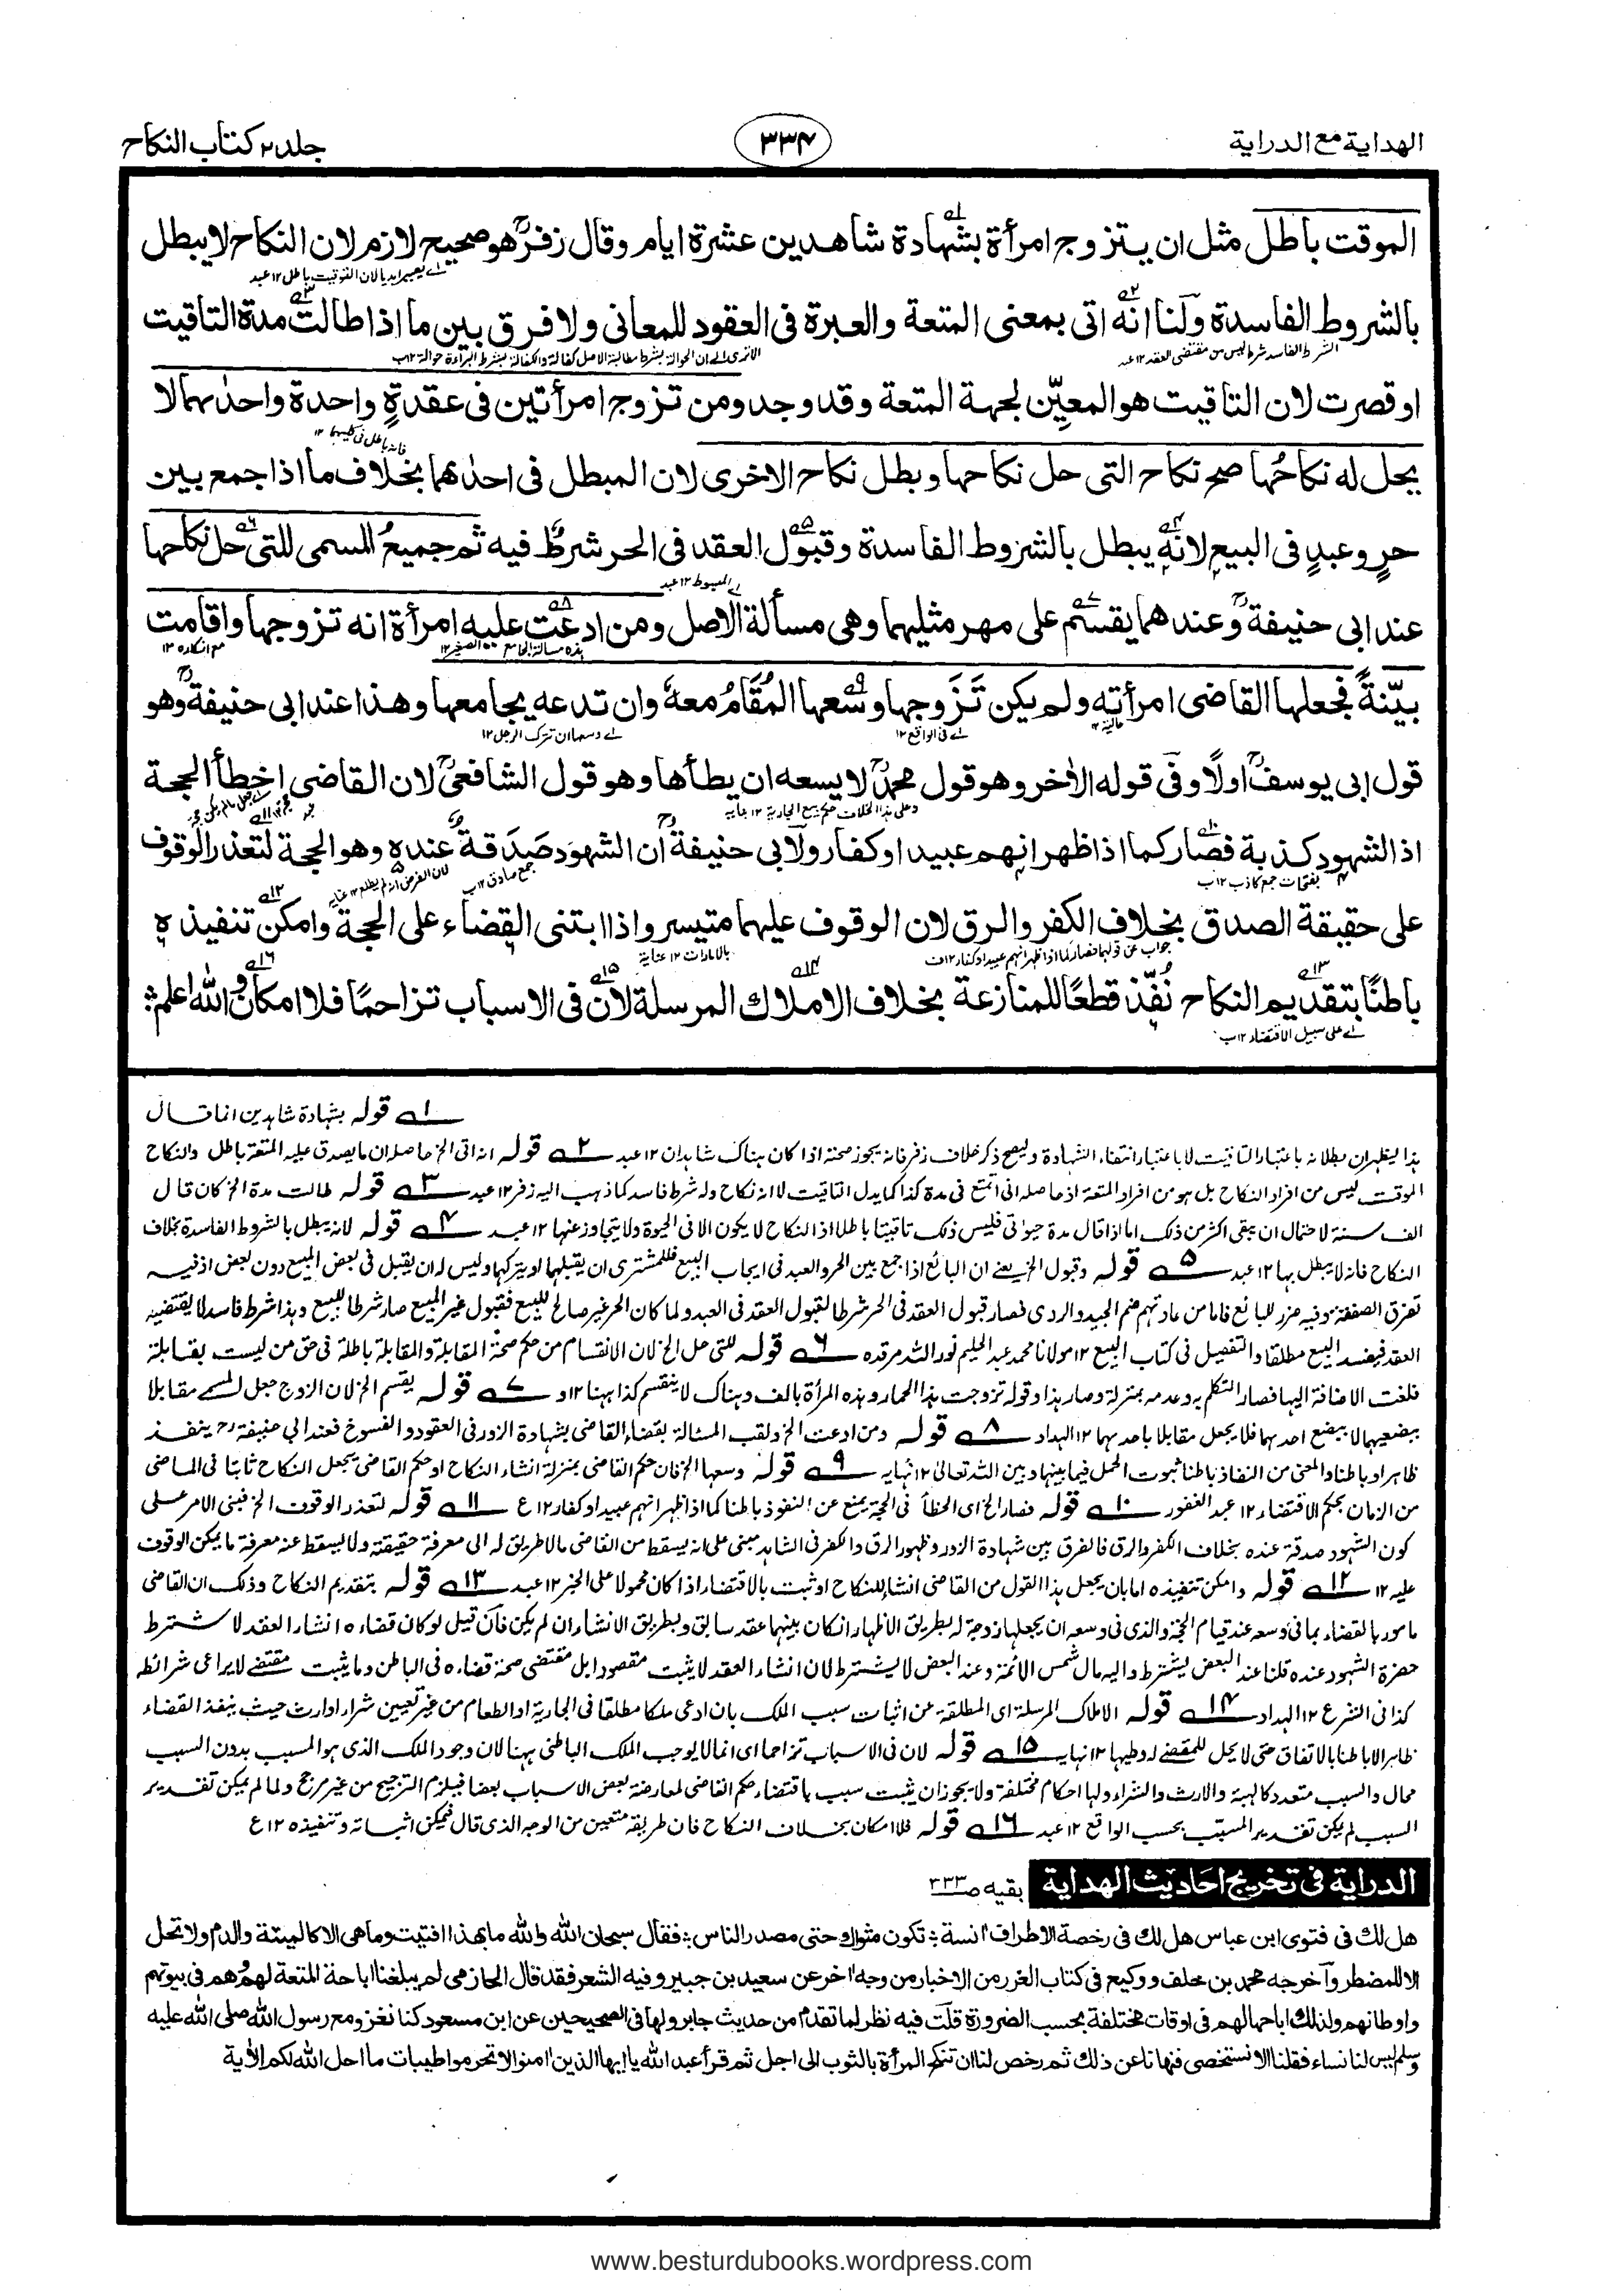 الهداية مع الدراية
۳۳۴
جلد ۲ كتاب النكاح
الموقت باطل مثل ان يتزوج امرأة بشهادة شاهدين عشرة ايام وقال زفرؒ هو صحيح لازم لان النكاح لا يبطل
بالشروط الفاسدة ولنا انه اتى بمعنى المتعة والعبرة فى العقود للمعانى ولا فرق بين ما اذا طالت مدة التاقيت
الشرط الفاسد شرط ليس من مقتضى العقد ۱۲ عبد
او قصرت لان التاقيت هو المعيّن لجهة المتعة وقد وجد ومن تزوج امرأتين فى عقدةٍ واحدة واحدٰهما لا
يحل له نكاحُها صح نكاح التى حل نكاحها وبطل نكاح الاخرى لان المبطل فى احدٰهما بخلاف ما اذا جمع بين
حرٍ وعبدٍ فى البيع لانه يبطل بالشروط الفاسدة وقبول العقد فى الحر شرطٌ فيه ثم جميعُ المسمى للتى حل نكاحها
عند ابى حنيفةؒ وعندهما يقسم على مهر مثليهما وهى مسألة الاصل ومن ادعت عليه امرأة انه تزوجها واقامت
بيّنةً فجعلها القاضى امرأته ولم يكن تَزَوجها وسعها المُقَامُ معهٗ وان تدعه يجامعها وهذا عند ابى حنيفةؒ وهو
اے فى الواقع ۱۲
قول ابى يوسفؒ اولًا وفى قوله الاٰخر وهو قول محمدؒ لا يسعه ان يطأها وهو قول الشافعىؒ لان القاضى اخطأ الحجة
اذ الشهود كذبة فصار كما اذا ظهر انهم عبيد او كفار ولابى حنيفةؒ ان الشهود صَدَقة عنده وهو الحجة لتعذر الوقوف
بفتحات جمع كاذب ۱۲ ب
على حقيقة الصدق بخلاف الكفر والرق لان الوقوف عليهما متيسر واذا ابتنى القضاء على الحجة وامكن تنفيذه
بالامارات ۱۲ عناية
باطنًا بتقديم النكاح نُفّذ قطعًا للمنازعة بخلاف الاملاك المرسلة لان فى الاسباب تزاحمًا فلا امكان والله اعلم
اے على سبيل الاقتضاء ۱۲ ب
۱ قوله بشهادة شاهدين انما قال
هذا ليظهر ان بطلانه باعتبار التاقيت لا باعتبار انتفاء الشهادة وليصح ذكر خلاف زفر فانه يجوز صحته اذا كان هناك شاهدان ۱۲ عبد ۲ قوله انه اتى الخ حاصله ان ما يصدق عليه المتعة باطل والنكاح
الموقت ليس من افراد النكاح بل هو من افراد المتعة اذ حاصله انى اتمتع فى مدة كذا كما يدل التاقيت لا انه نكاح وله شرط فاسد كما ذهب اليه زفر ۱۲ عبد ۳ قوله طالت مدة الخ كان قال
الف سنة لاحتمال ان يبقى اكثر من ذلك اما اذا قال مدة حيوتى فليس ذلك تاقيتا باطلا اذ النكاح لا يكون الا فى الحيوة ولا يتجاوز عنها ۱۲ عبد ۴ قوله لانه يبطل بالشروط الفاسدة بخلاف
النكاح فانه لا يبطل بها ۱۲ عبد ۵ قوله وقبول الخ يعنى ان البائع اذا جمع بين الحر والعبد فى ايجاب البيع فللمشترى ان يقبلهما او يتركهما وليس له ان يقبل فى بعض المبيع دون بعض اذ فيه
تفرق الصفقة وفيه ضرر للبائع فان من عادتهم ضم الجيد والردى فصار قبول العقد فى الحر شرطا لقبول العقد فى العبد ولما كان الحر غير صالح للبيع فقبول غير المبيع صار شرطا للبيع وهذا شرط فاسد لا يقتضيه
العقد فيفسد البيع مطلقا والتفصيل فى كتاب البيع ۱۲ مولانا محمد عبد الحليم نور الله مرقده ۶ قوله للتى حل الخ لان الانقسام من حكم صحة المقابلة والمقابلة باطلة فى حق من ليست بمقابلة
فلغت الاضافة اليها فصار التكلم به وعدمه بمنزلة وصار هذا وقوله تزوجت هذا الحمار وهذه المرأة بالف وهناك لا ينقسم كذا ههنا ۱۲ و ۷ قوله يقسم الخ لان الزوج جعل المسمى مقابلا
ببضعيهما لا ببضع احدهما فلا يجعل مقابلا باحدهما ۱۲ الهداد ۸ قوله ومن ادعت الخ ولقب المسئالة بقضاء القاضى بشهادة الزور فى العقود والفسوخ فعند ابى حنيفة رح ينفذ
ظاهرا وباطنا والمعنى من النفاذ باطنا ثبوت الحل فيما بينها وبين الله تعالى ۱۲ نهايه ۹ قوله وسعها الخ فان حكم القاضى بمنزلة انشاء النكاح او حكم القاضى يجعل النكاح ثابتا فى الماضى
من الزمان بحكم الاقتضاء ۱۲ عبد الغفور ۱۰ قوله فصار الخ اى الخطأ فى الحجة يمنع عن النفوذ باطنا كما اذا ظهر انهم عبيد او كفار ۱۲ ع ۱۱ قوله لتعذر الوقوف الخ فبنى الامر على
كون الشهود صدقة عنده بخلاف الكفر والرق فالفرق بين شهادة الزور وظهور الرق والكفر فى الشاهد مبنى على انه يسقط من القاضى ما لا طريق له الى معرفة حقيقته ولا يسقط عنه معرفة ما يمكن الوقوف
عليه ۱۲ ۱۲ قوله وامكن تنفيذه اما بان يجعل هذا القول من القاضى انشاء للنكاح او ثبت بالاقتضاء اذا كان محمولا على الخبر ۱۲ عبد ۱۳ قوله بتقديم النكاح وذلك ان القاضى
مامور بالقضاء بما فى وسعه عند قيام الحجة والذى فى وسعه ان يجعلها زوجة له بطريق الاظهار ان كان بينهما عقد سابق وبطريق الانشاء ان لم يكن فان قيل لو كان قضاءه انشاء العقد لاشترط
حضرة الشهود عنده قلنا عند البعض يشترط واليه مال شمس الائمة وعند البعض لا يشترط لان انشاء العقد لا يثبت مقصودا بل مقتضى صحة قضاءه فى الباطن وما يثبت مقتضى لا يراعى شرائطه
كذا فى الشرع ۱۲ الهداد ۱۴ قوله الاملاك المرسلة اى المطلقة عن اثبات سبب الملك بان ادعى ملكا مطلقا فى الجارية او الطعام من غير تعيين شراء او ارث حيث ينفذ القضاء
ظاهرا لا باطنا بالاتفاق حتى لا يحل للمقضى له وطيها ۱۲ نهايه ۱۵ قوله لان فى الاسباب تزاحما اى انما لا يوجب الملك الباطنى ههنا لان وجود الملك الذى هو المسبب بدون السبب
محال والسبب متعدد كالهبة والارث والشراء ولها احكام مختلفة ولا يجوز ان يثبت سبب باقتضاء حكم القاضى لمعارضة بعض الاسباب بعضا فيلزم الترجيح من غير مرجح ولما لم يمكن تقدير
السبب لم يكن تقدير المسبب بحسب الواقع ۱۲ عبد ۱۶ قوله فلا امكان بخلاف النكاح فان طريقه متعين من الوجه الذى قال فيمكن اثباته وتنفيذه ۱۲ ع
الدراية فى تخريج احاديث الهداية
بقيه ص ۳۳۳
هل لك فى فتوى ابن عباس هل لك فى رخصة الاطراف اٰنسة : تكون مثواك حتى مصدر الناس : فقال سبحان الله والله ما بهذا افتيت وما هى الا كالميتة والدم ولا تحل
الا للمضطر وآخرجه محمد بن خلف ووكيع فى كتاب الغرر من الاخبار من وجه اٰخر عن سعيد بن جبير وفيه الشعر فقد قال الحازمى لم يبلغنا اباحة المتعة لهم وهم فى بيوتهم
واوطانهم ولذلك اباحها لهم فى اوقات مختلفة بحسب الضرورة قلت فيه نظر لما تقدم من حديث جابر ولها فى الصحيحين عن ابن مسعود كنا نغزو مع رسول الله صلى الله عليه
وسلم ليس لنا نساء فقلنا الا نستخصى فنهانا عن ذلك ثم رخص لنا ان ننكح المرأة بالثوب الى اجل ثم قرأ عبد الله يا ايها الذين اٰمنوا لا تحرموا طيبات ما احل الله لكم الاٰية
www.besturdubooks.wordpress.com